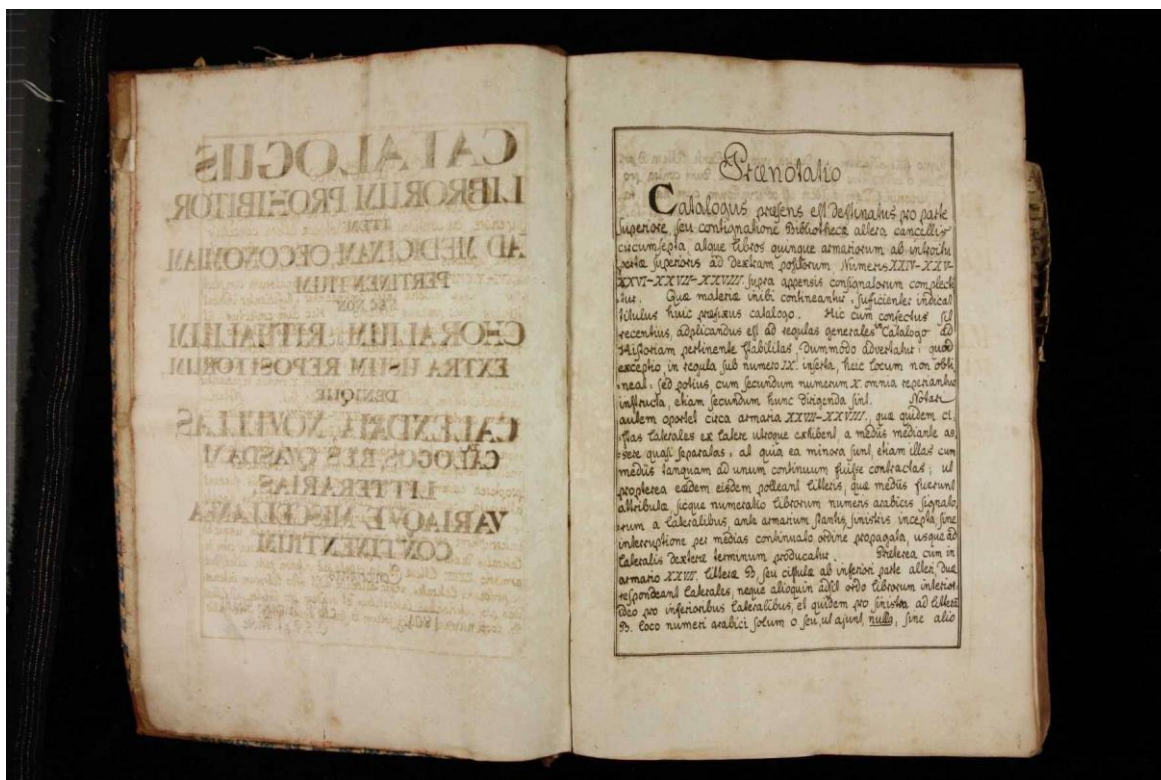 CATALOGUS
LIBRORUM PROHIBITOR,
ITEM
AD MEDICINAM, OECONOMIAM
PERTINENTIUM
NEC NON
CHORALIUM, RITUALIUM
EXTRA USUM REPOSITORUM.
DENIQUE
CALENDARIA, NOVELLAS
CATLOGOS, RES QUASDAM
LITTERARIAS,
VARIAQVE MISCELLANEA
CONTINENTIUM
Prænotatio
Catalogus præsens est destinatus pro parte
superiore, seu contignatione Bibliothecæ altera cancellis
circumsepta, atque libros quinque armariorum ab introitu
portæ superioris ad dextram positorum, Numeris XXIV-XXV-
XXVI-XXVII-XXVIII. supra appensis consignatorum complect
itur. Quæ materiæ inibi contineantur, suficienter indicat
titulus huic præfixus catalogo. Hic cum confectus sit
recentius, adplicandus est ad regulas generales in Catalogo ad
Historiam pertinente stabilitas, dummodo advertatur: quod
exceptio, in regula sub numero IX. inserta, heic locum non obti
neat: sed potius, cum secundum numerum X. omnia reperiantur
instructa, etiam secundum hunc dirigenda sint. Notari
autem oportet circa armaria XXVII-XXVIII, quæ quidem ci
stas laterales ex latere utroque exhibent, a mediis mediante as
sere quasi separatas: at quia ea minora sunt, etiam illas cum
mediis tanquam ad unum continuum fuisse contractas; ut
propterea eædem eisdem polleant litteris, quæ mediis fuerunt
attributæ, sicque numeratio librorum numeris arabicis signato,
rum a lateralibus, ante armarium stantis, sinistris incepta, sine
interruptione per medias continuato ordine propagata, usque ad
lateralis dexteræ terminum producatur. Præterea cum in
armario XXVII. litteræ B, seu cistulæ ab inferiori parte alteri, duæ
respondeant laterales, neque alioquin adsit ordo librorum interior
ideo pro inferioribus lateralibus, et quidem pro sinistra ad litteræ
B. loco numeri arabici solum o seu, ut ajunt, nulla, sine alio